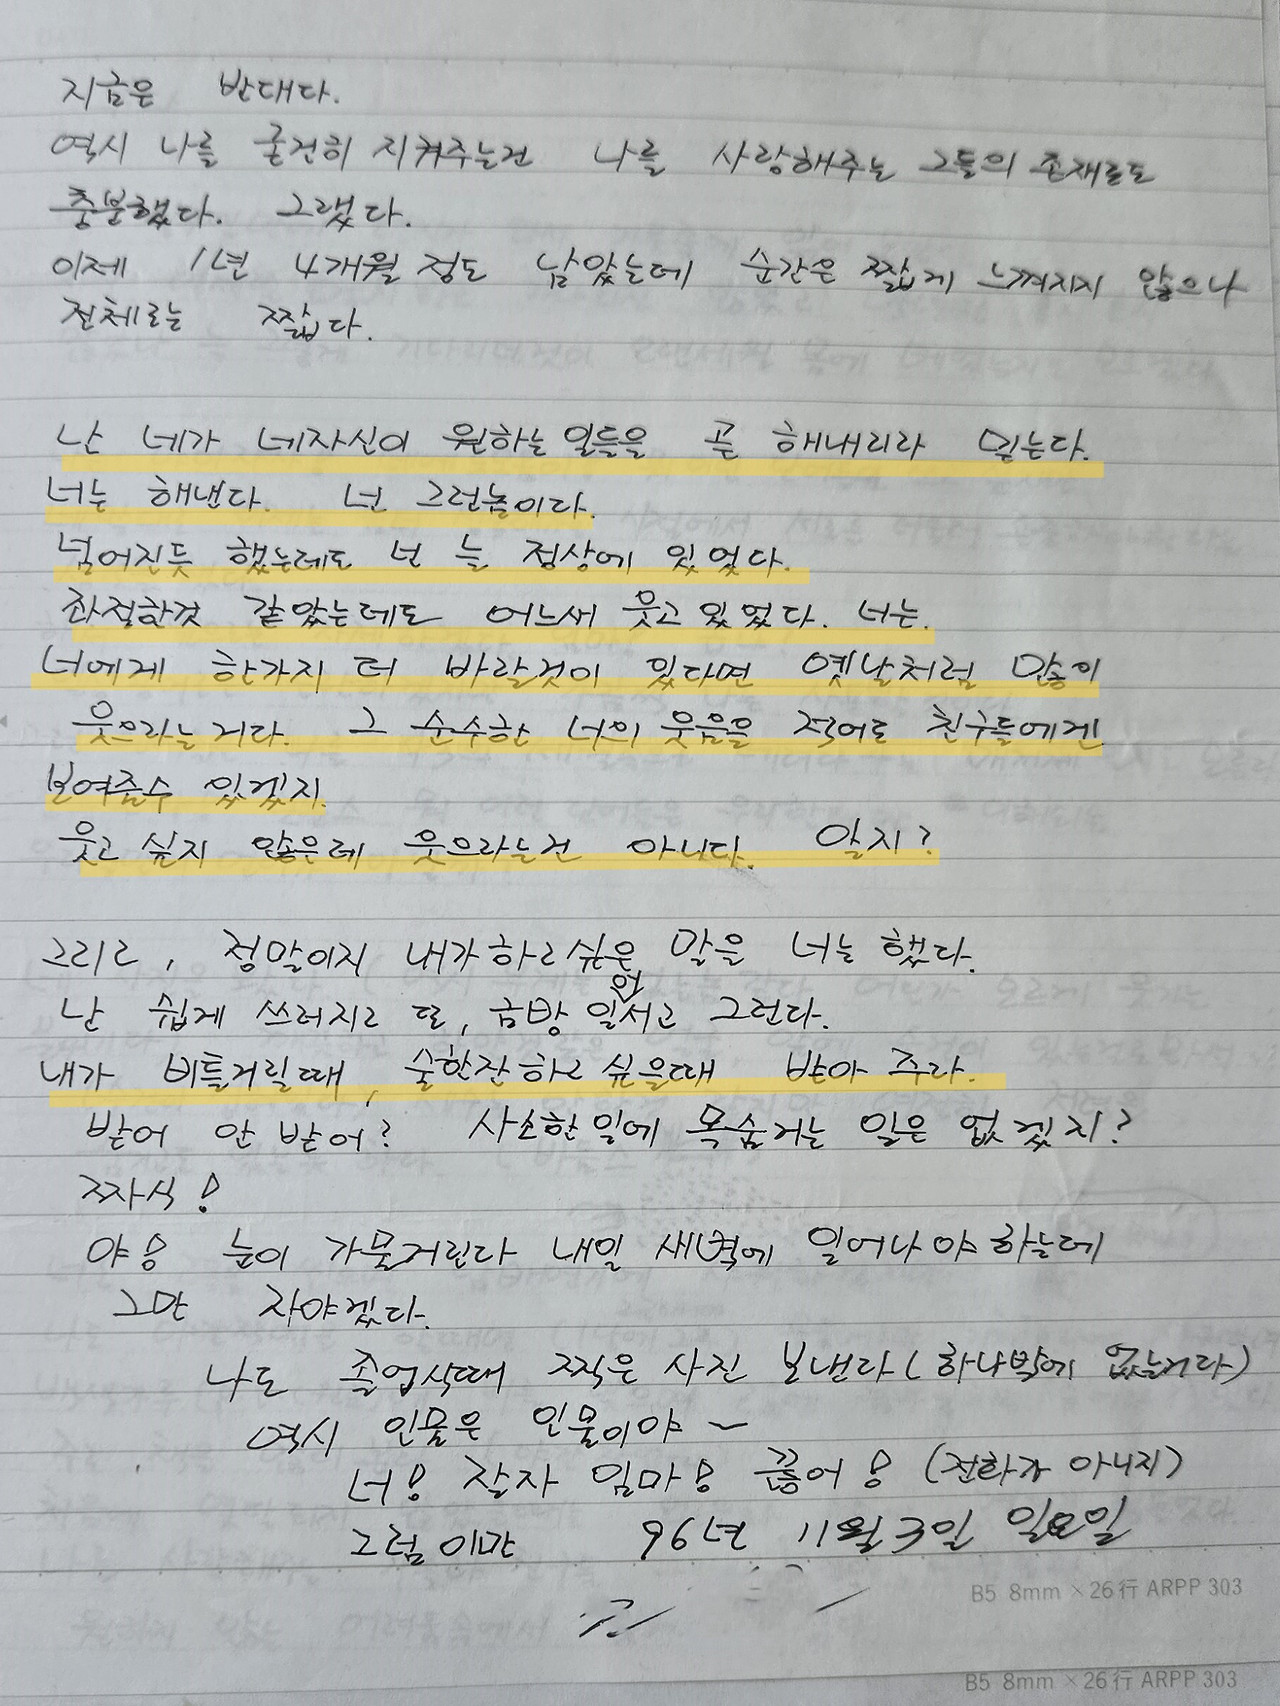 지금은 반대다.
역시 나를 굳건히 지켜주는건 나를 사랑해주는 그들의 존재로도
충분했다. 그랬다.
이제 1년 4개월 정도 남았는데 순간은 짧게 느껴지지 않으나
전체로는 짧다.
난 네가 네자신이 원하는 일들을 곧 해내리라 믿는다.
너는 해낸다. 넌 그런놈이다.
넘어진듯 했는데도 넌 늘 정상에 있었다.
좌절한것 같았는데도 어느새 웃고 있었다. 너는.
너에게 한가지 더 바랄것이 있다면 옛날처럼 많이
웃으라는 거다. 그 순수한 너의 웃음을 적어도 친구들에겐
보여줄수 있겠지.
웃고 싶지 않은데 웃으라는건 아니다. 알지?
그리고, 정말이지 내가하고싶은 말을 너는 했다.
난 쉽게 쓰러지고 또, 금방 일어서고 그런다.
내가 비틀거릴때, 술한잔하고 싶을때 받아 주라.
받어 안 받어? 사소한일에 목숨거는 일은 없겠지?
짜식!
야! 눈이 가물거린다 내일 새벽에 일어나야 하는데
그만 자야겠다.
나도 졸업식때 찍은 사진 보낸다(하나밖에 없는거라)
역시 인물은 인물이야~
너! 잘자 임마! 끊어! (전화가 아니지)
그럼이만 96년 11월3일 일요일
B5 8mm×26行 ARPP 303
B5 8mm×26行 ARPP 303